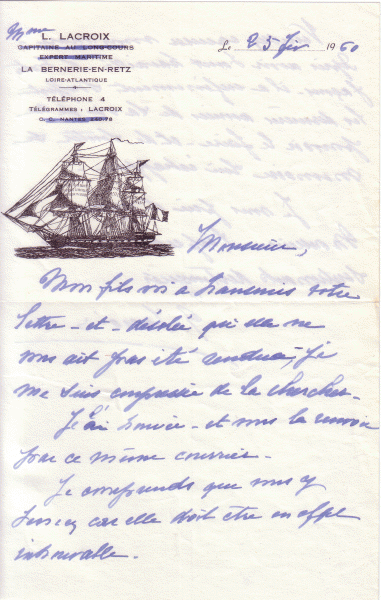 Mme
L. LACROIX
CAPITAINE AU LONG-COURS
EXPERT MARITIME
LA BERNERIE-EN-RETZ
LOIRE-ATLANTIQUE
TÉLÉPHONE 4
TÉLÉGRAMMES : LACROIX
C. C. NANTES
Le 25 Fév 1960
Monsieur,
Mon fils m'a transmis votre
lettre - et - désolée qu'elle ne
vous ait pas été rendue, je
me suis empressée de la chercher -
Je l'ai trouvée - et vous la renvoie
par ce même courrier -
Je comprends que vous y
teniez car elle doit être en effet
introuvable.